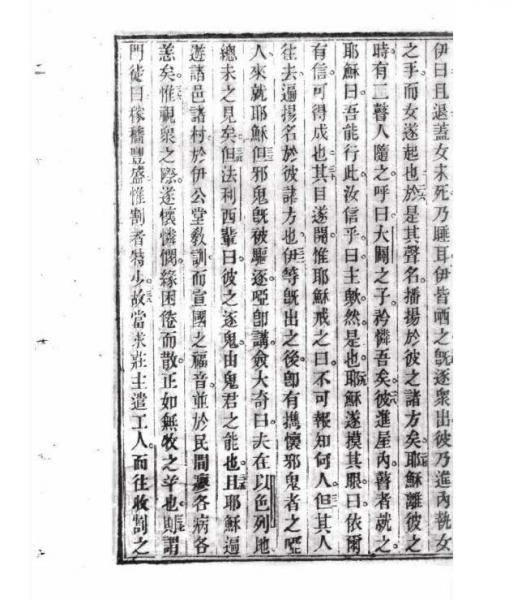 伊曰且退蓋女未死乃睡耳伊皆哂之旣逐衆出彼乃進內執女
之手而女遂起也於是其聲名播揚於彼之諸方矣耶穌離彼之
時有二瞽人隨之呼曰大闢之子矜憐吾矣彼進屋內瞽者就之
耶穌曰吾能行此汝信乎曰主歟然是也耶穌遂摸其眼曰依爾
有信可得成也其目遂開惟耶穌戒之曰不可報知何人但其人
往去遍揚名於彼諸方也伊等旣出之後卽有攜懷邪鬼者之啞
人來就耶穌但邪鬼旣被驅逐啞卽講僉大奇曰夫在以色列地
總未之見矣但法利西輩曰彼之逐鬼由鬼君之能也且耶穌遍
遊諸邑諸村於伊公堂敎訓而宣國之福音並於民間各病各
恙矣惟視衆之際遂懷憐憫緣困倦而散正如無牧之羊也則謂
門徒曰稼穡豐盛惟割者特少故當求莊主遣工人而往收割之